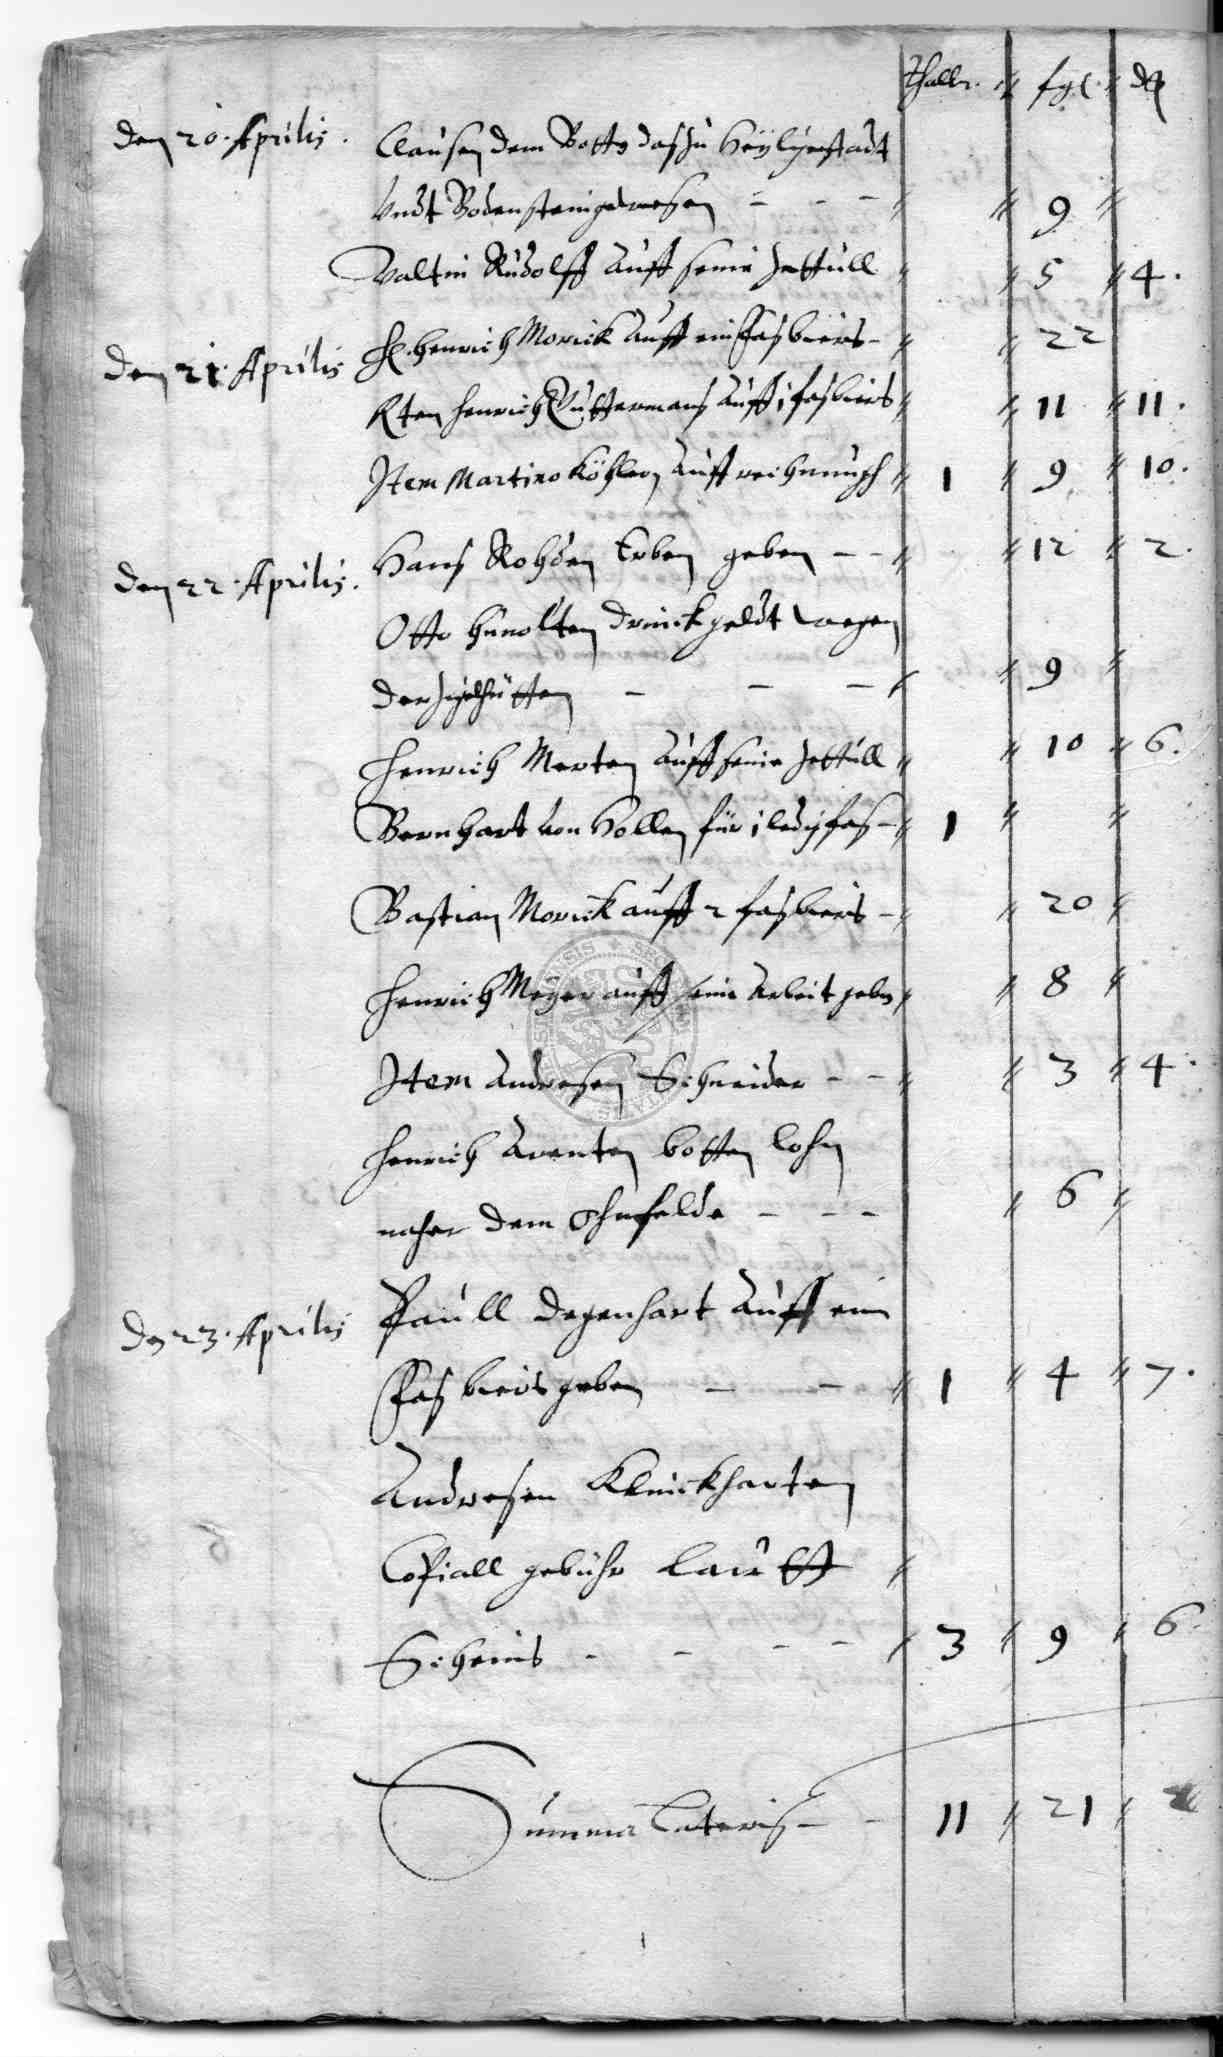 thaller " fgl " d
den 20. Aprilis. Clausen dem Botten das zu Heyligenstadt
Undt Bodenstein gewesen - - - " " 9 "
Valtin Rudolff Auff seine Zettull " " 5 " 4.
den 21. Aprilis H. Henrich Morick Auff ein Fas biers - " " 22
Henrich Auff 1 fas biers " " 11 " 11.
Item Martino Köhlern Auff rechnungh " 1 " 9 " 10.
den 22. Aprilis. Hans Rohden Erben geben - - " " 12 " 2.
Otto Hunolten Drinckgeldt wegen
der Ziegelhütten - - - " " 9 "
Henrich Merten Auff seine Zettull " " 10 " 6.
Bernhart von Hollen für 1 ledig fas - " 1 " "
Bastian Morick auff 2 fas biers - " " 20 "
Henrich Meyer auff seine Arbeit geben " " 8 "
Item Andresen Schneider - - " " 3 " 4.
Henrich Arenten botten lohn
naher dem Ohmfelde - - - " 6 "
den 23. Aprilis Paull Degenhart Auff ein
Fas biers geben - - " 1 " 4 " 7.
Andresen Klinckharten
Copiall gebühr Lautt "
Scheins - - - - " 3 " 9 " 6.
Summa Lateris - - 11 " 21 " 2